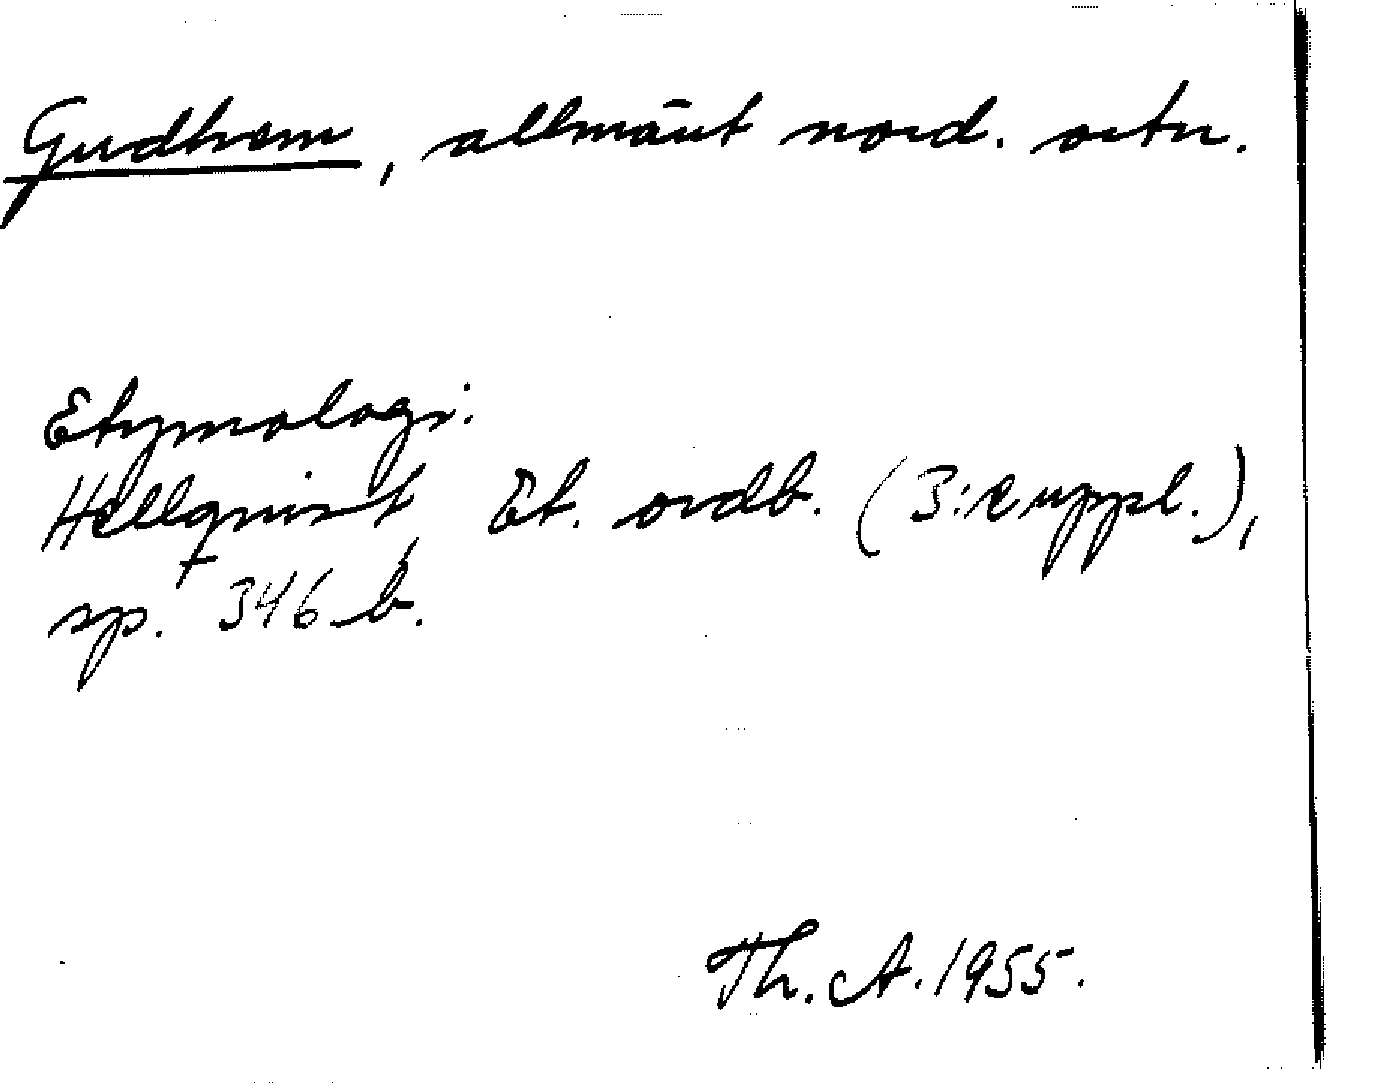 Gudhem, allmänt nord. ortn.
Etymologi:
Hellquist, Et. ordb. (3:e uppl.),
sp. 346 b.
Th. A. 1955.